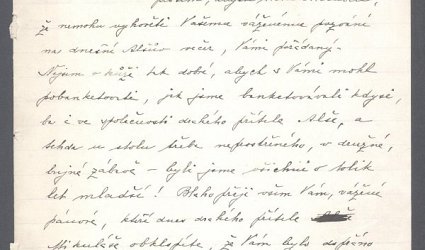 že nemohu vyhověti Vašemu váženému pozvání
na dnešní Alšův večer, Vámi pořádaný.
Nejsem v kůži tak dobré, abych s Vámi mohl
pobanketovati, jak jsme banketovávali kdysi,
be i ve společnosti drahého přítele Alše, a
tehdy u stolu třeba neprostřeného, v družné,
bujné zábavě – byli jsme všichni o tolik
let mladší! Blaho přeji všem Vám, vážení
pánové, kteří dnes drahého přítele
Mikuláše obklopíte, že Vám bylo dopřáno